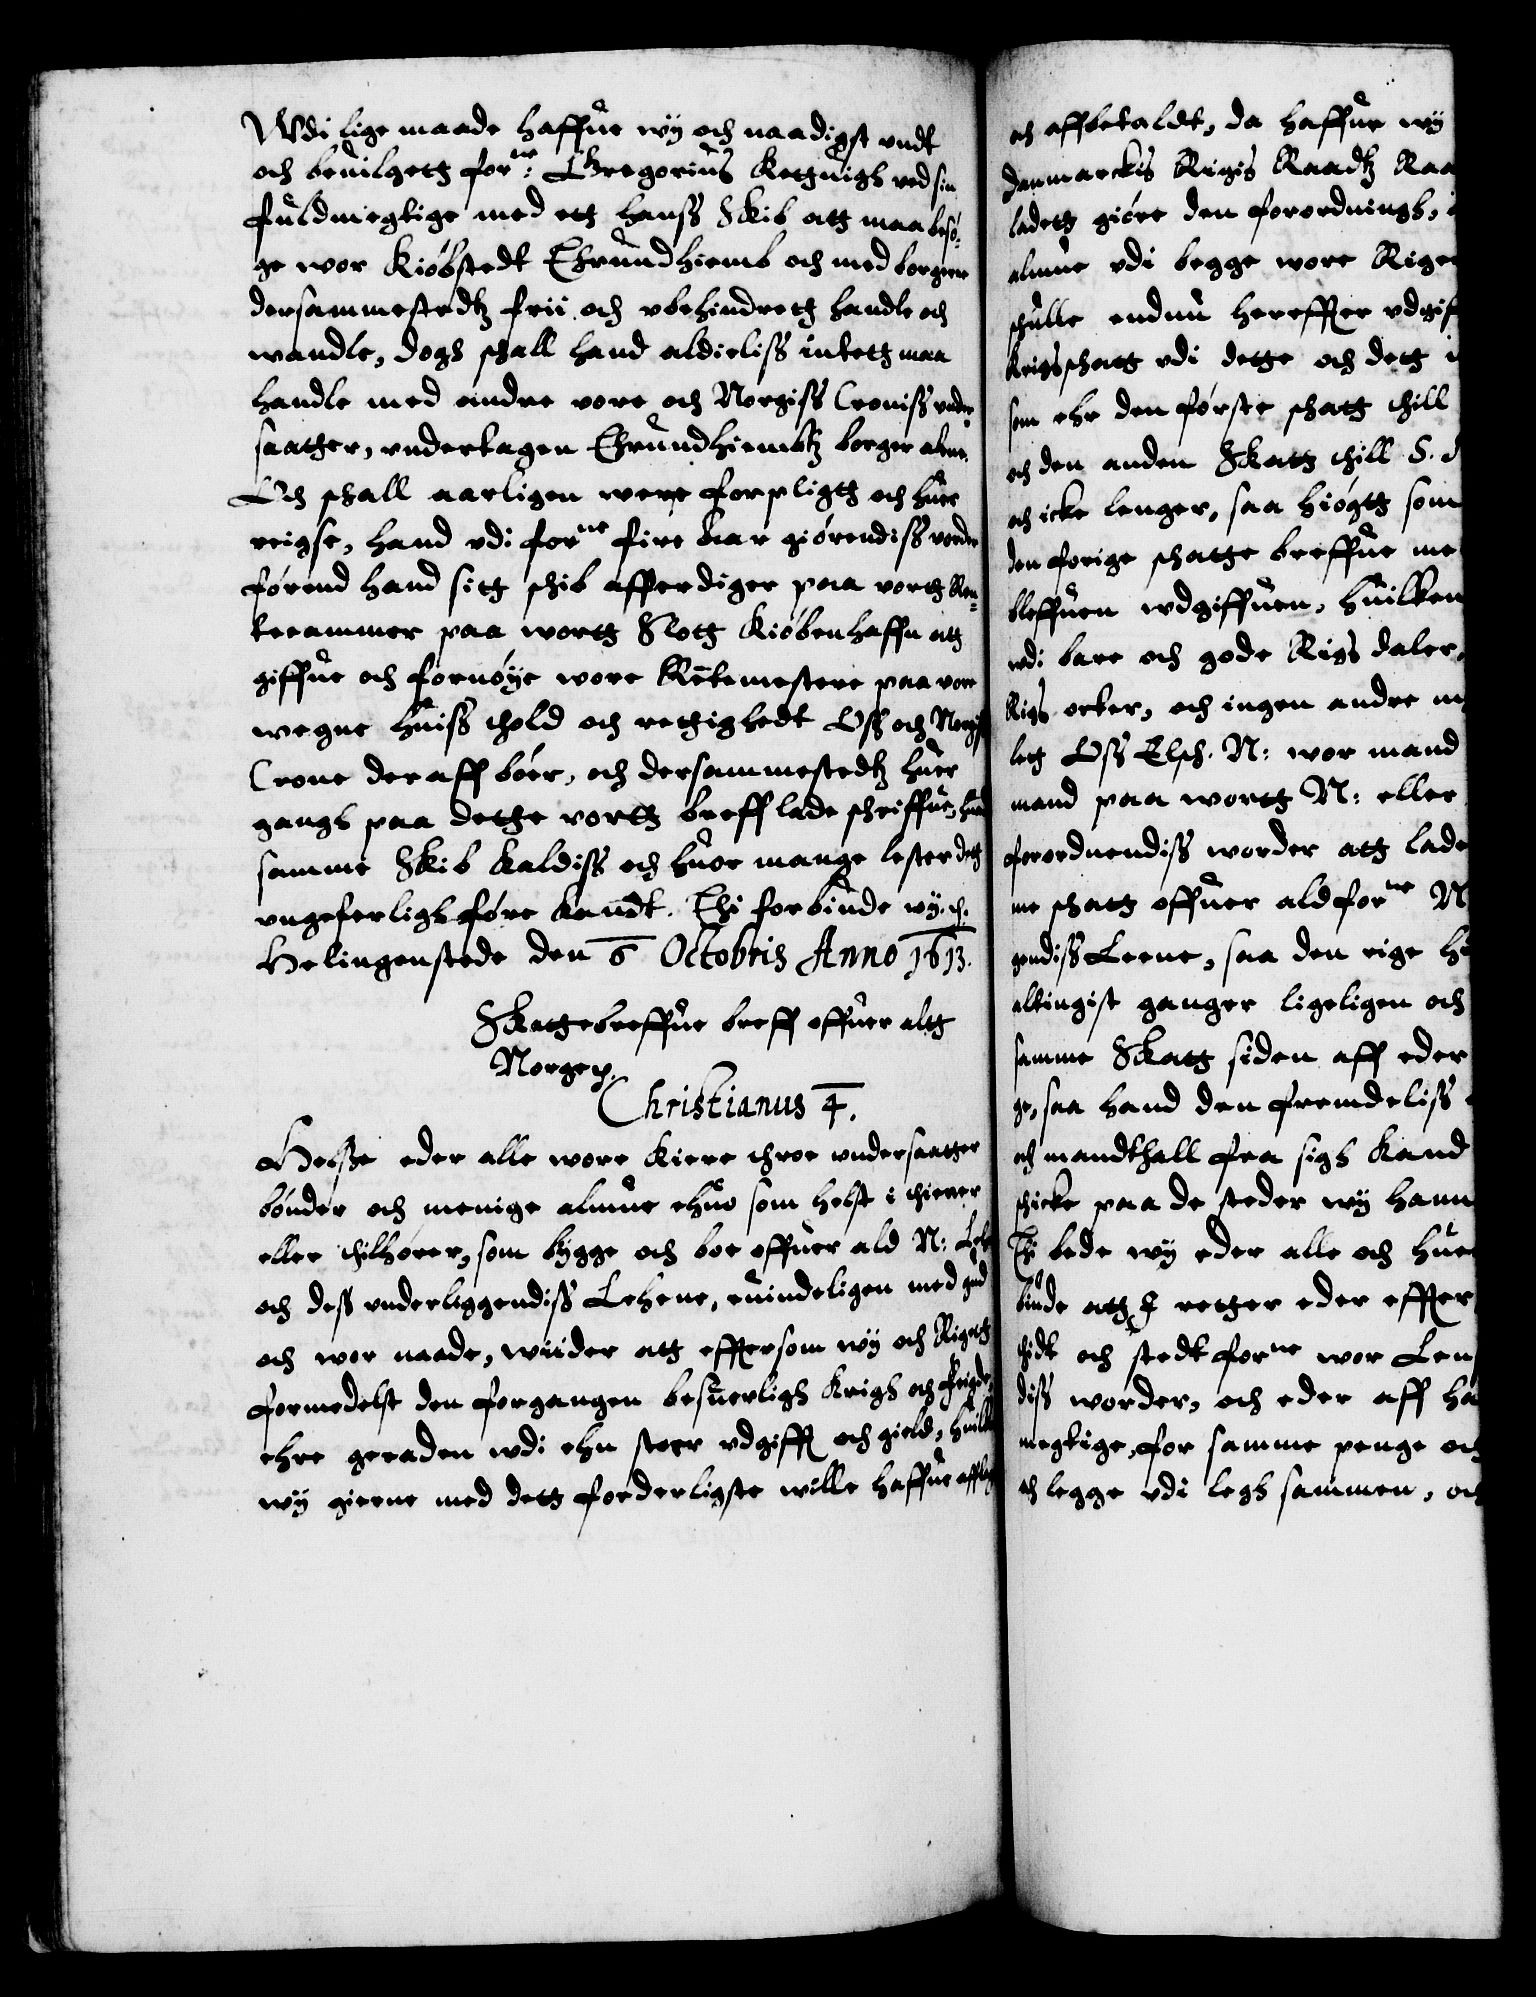 Wdi lige maade haffue wÿ och naadigst vndt
och beuilgett forne: Gregorius Kettnigh ved sin
fuldmegtige med ett hans Skib att maa besø-
ge wor Kiøbstedt Thrundhiemb och med borgerne
dersammestedtz frii och vbehindrett handle och
wandle, dogh schall hand aldieliss intett maa
handle med andre vore och Norgiss Croniss vnder-
saather, vndertagen Thrundhiembtz borger alene.
Och schall aarligen were forpligtt och huer
reigse, hand vdi forne fire Aar giørendiss vorder
førend hand sitt schib afferdiger paa vortt Ren-
tecammer paa wortt Slott Kiøbenhaffn att
giffue och fornøÿe wore Rētemestere paa vore
wegne huiss thold och rettighedt Oss och Norgis
Crone deraff bör, och dersammestedtz huer
gangh paa dette vortt breff lade schriffue, huad
samme Skib kaldiss och huor mange lester dett
vngeferligh føre kandt. Thi forbiude wÿ. etc.
Helingenstede den 6 Octobris Anno 1613.
Skattebreffue breff offuer altt
Norge etc.
Christianus 4.
Helsse eder alle wore kiere throe vndersaatter
bønder och menige almue ehuo som helst i thiener
eller thilhører, som bÿgge och boe offuer ald N: Lehn
och dess vnderliggendiss Lehene, euindeligen med gud
och wor naade, wiider att effersom wÿ och Rigett
formedelst den forgangen besuerligh krigh och feigde,
ehre geraaden wdi ehn stoer vdgifft och gield, huilke
wÿ gierne med dett forderligste wille haffue afflagt
och affbetaldt, da haffue wÿ
Danmarckis Rigis Raadtz Raa
ladett giøre den forordningh,
almue vdi begge wore Rige
schulle endnu hereffter vdgif
krigsschatt vdi dette och dett
som ehr den første schatt thill
och den anden Skatt thill S.
och icke lenger, saa høgtt som
den forige schatte breffue me
bleffuen wdgiffuen, huilken
wdi bare och gode Rigs daler,
Rigs orter, och ingen andre m
lett Oss Elsch. N: wor mand
mand paa wortt N: eller
forordnendiss worder att lade
me schatt offuer ald forne N
gendiss Leene, saa den rige h
altingist ganger ligeligen och
samme Skatt siden aff eder
ge, saa hand den fremdeliss
och mandthall fra sigh kand
schicke paa de steder wÿ hann
Thi bede wÿ eder alle och huer
biude att I retter eder effter
thidt och stedt forne wor Len
diss worder, och eder aff ha
megtige, for samme penge och
och legge vdi legh sammen, och